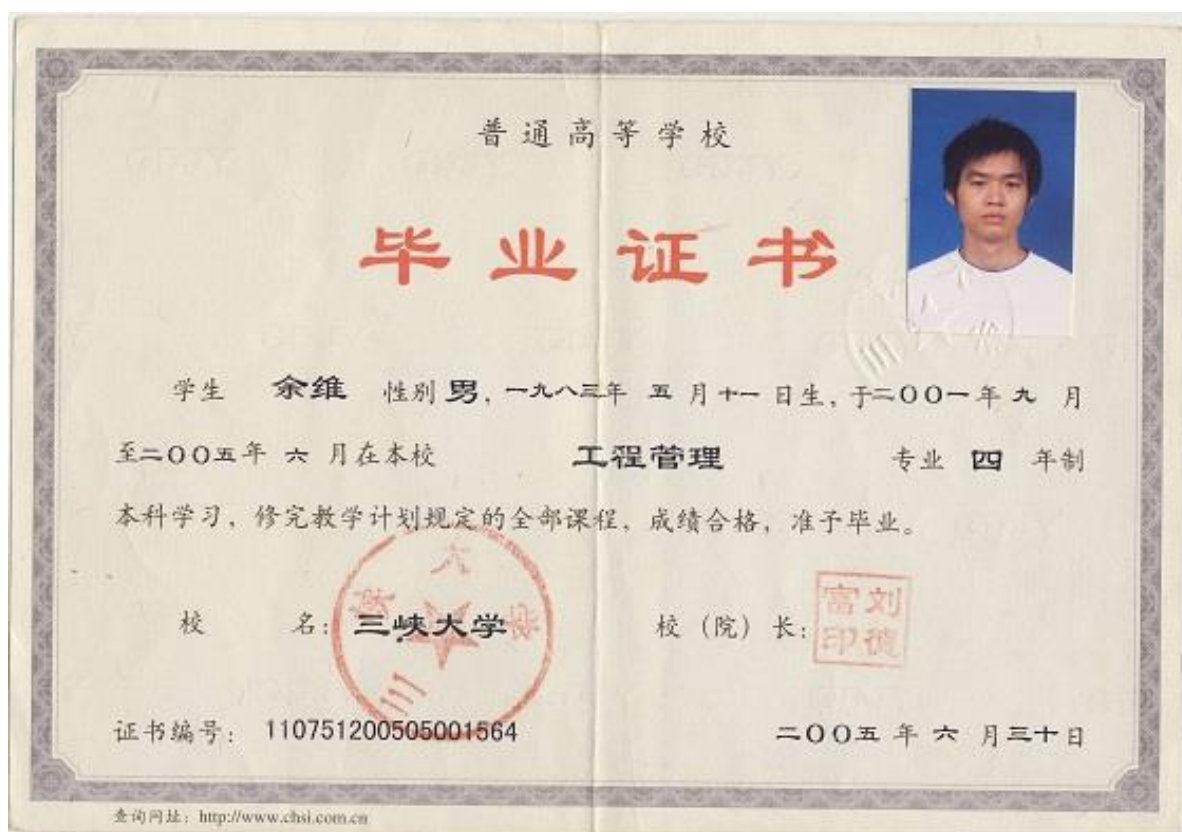 普通高等学校
毕业证书
学生 余维 性别 男，一九八三年 五 月十一日生，于二〇〇一年 九 月
至二〇〇五年 六 月在本校 工程管理 专业 四 年制
本科学习，修完教学计划规定的全部课程，成绩合格，准予毕业。
校 名：三峡大学 校（院）长：
三峡大学
刘德富印
证书编号：110751200505001564 二〇〇五 年 六 月三十日
查询网址：http://www.chsi.com.cn